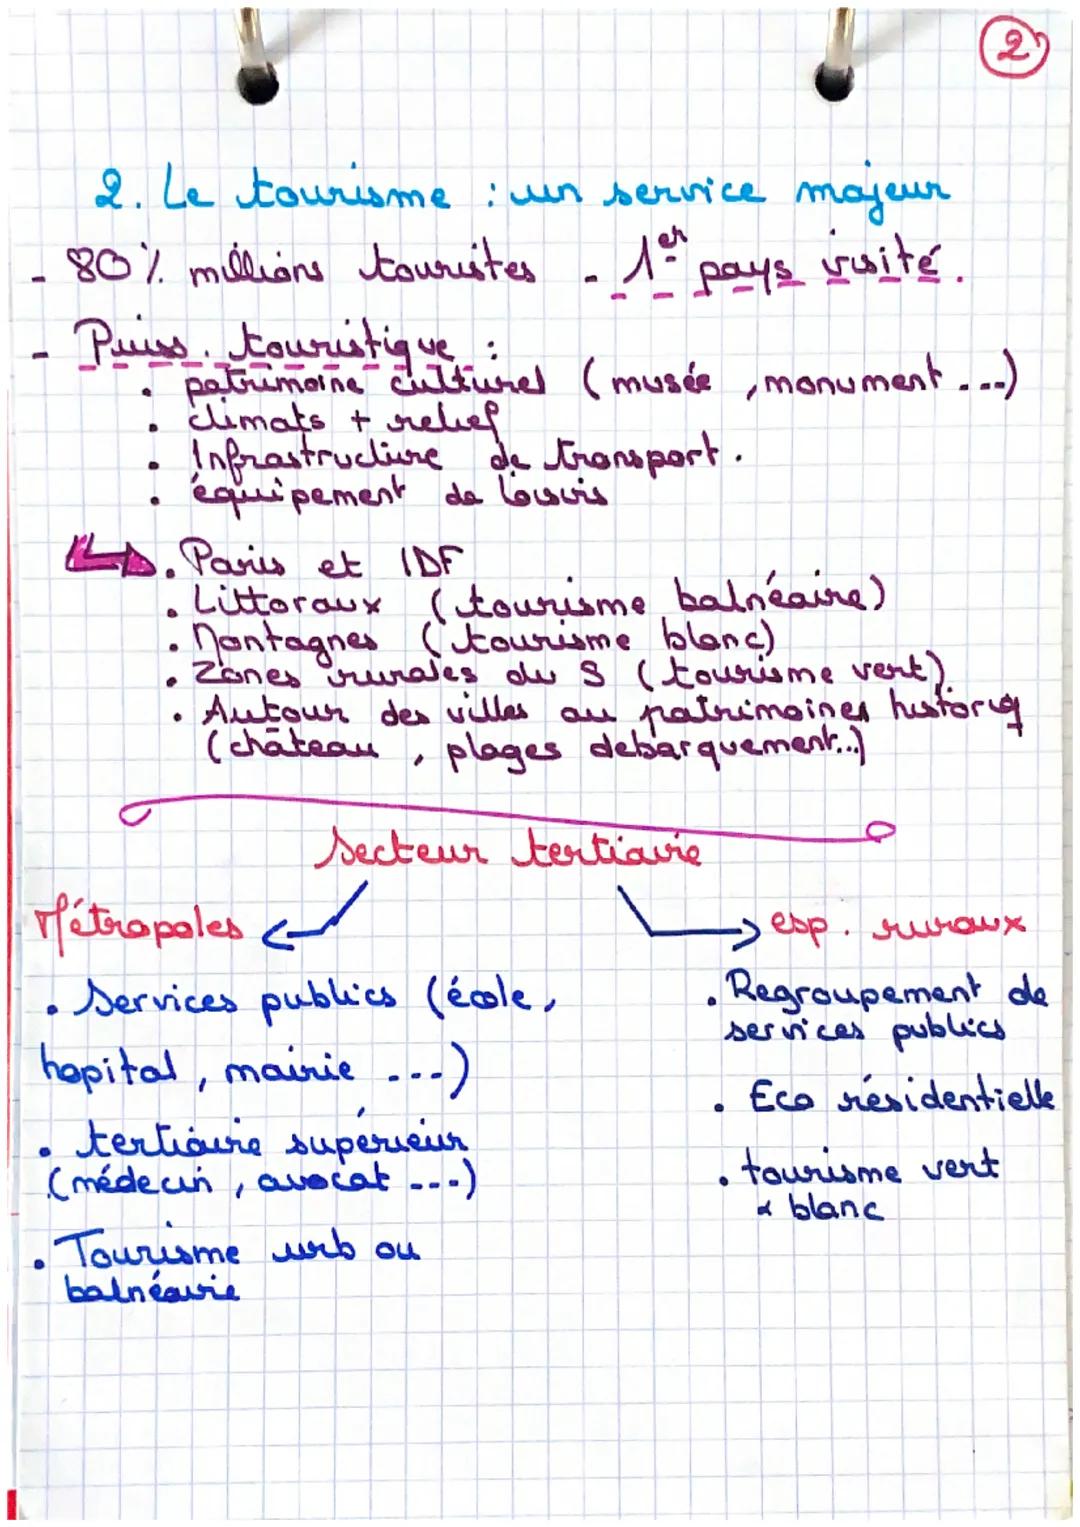 2
2. Le tourisme : un service majeur
- 80% millions touristes - 1er pays visité.
- Puiss. touristique :
• patrimoine culturel (musée, monument ...)
• climats + relief
• Infrastructure de transport.
• équipement de loisirs
• Paris et IDF
• Littoraux (tourisme balnéaire)
• Montagnes (tourisme blanc)
• Zones rurales du S (tourisme vert)
• Autour des villes au patrimoines historiq
(château, plages debarquement...)
Secteur tertiaire
Métropoles
• Services publics (école,
hopital, mairie ...)
• tertiaire supérieur
(médecin, avocat ...)
• Tourisme urb ou
balnéaire
esp. ruraux
• Regroupement de
services publics
• Eco résidentielle
• tourisme vert
& blanc